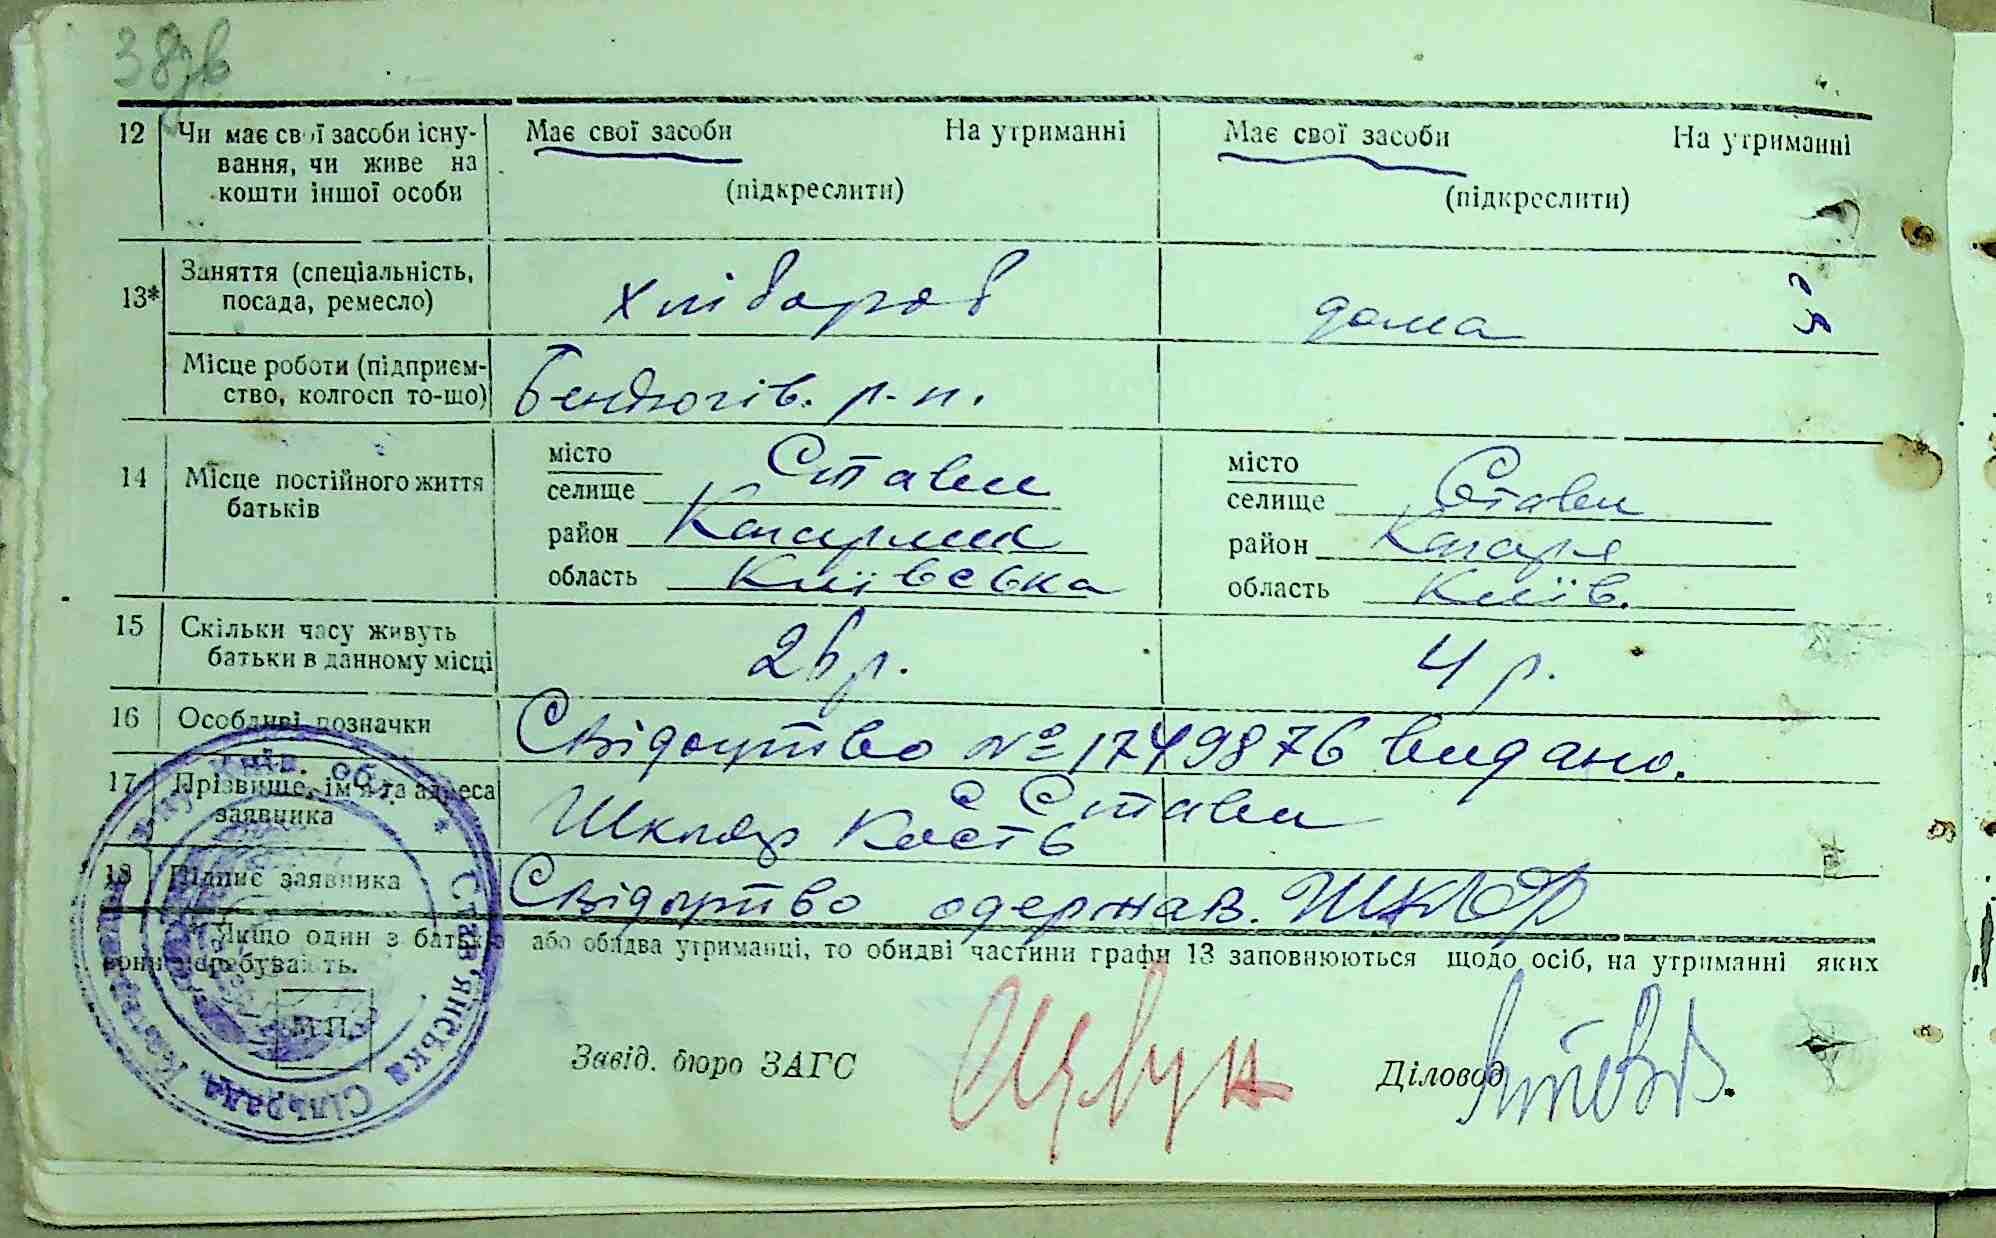 38зв
12 Чи має свої засоби існу- Має свої засоби На утриманні Має свої засоби На утриманні
вання, чи живе на
кошти іншої особи (підкреслити) (підкреслити)
13* Заняття (спеціальність,
посада, ремесло) хлібороб дома
Місце роботи (підприєм-
ство, колгосп то-що) р.-п.
14 Місце постійного життя
батьків
місто
селище Стави
район Кагарлик
область Київська
місто
селище Стави
район Кагарл
область Київ.
15 Скільки часу живуть
батьки в данному місці 26 р. 4 р.
16 Особливі позначки Свідоцтво № 1749876 видано.
17 Прізвище, ім'я та адреса с Стави
заявника Шкляр Кость
18 Підпис заявника Свідоцтво одержав. Шкляр
* Якщо один з батьків або обидва утриманці, то обидві частини графи 13 заповнюються щодо осіб, на утриманні яких
вони перебувають.
М.П.
Завід. бюро ЗАГС Діловод
Київ. обл. * Став'янська Сільрада